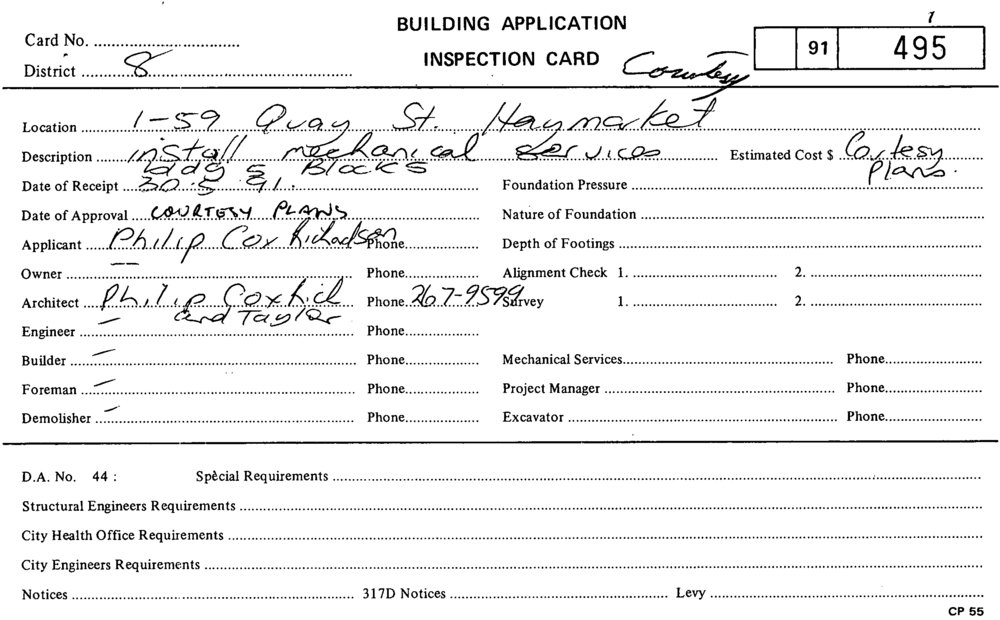 BUILDING APPLICATION
INSPECTION CARD
Courtesy
Card No.
District 8
1
91 495
Location 1-59 Quay St. Haymarket
Description install mechanical services Estimated Cost $ Cortesy
bldg 5 Blocks Plans.
Date of Receipt 30.5.91. Foundation Pressure
Date of Approval COURTESY PLANS Nature of Foundation
Applicant Philip Cox Richadson Phone Depth of Footings
Owner — Phone Alignment Check 1. 2.
Architect Philip Cox Rich Phone 267-9599 Survey 1. 2.
and Taylor
Engineer — Phone
Builder — Phone Mechanical Services Phone
Foreman — Phone Project Manager Phone
Demolisher — Phone Excavator Phone
D.A. No. 44 : Special Requirements
Structural Engineers Requirements
City Health Office Requirements
City Engineers Requirements
Notices 317D Notices Levy
CP 55